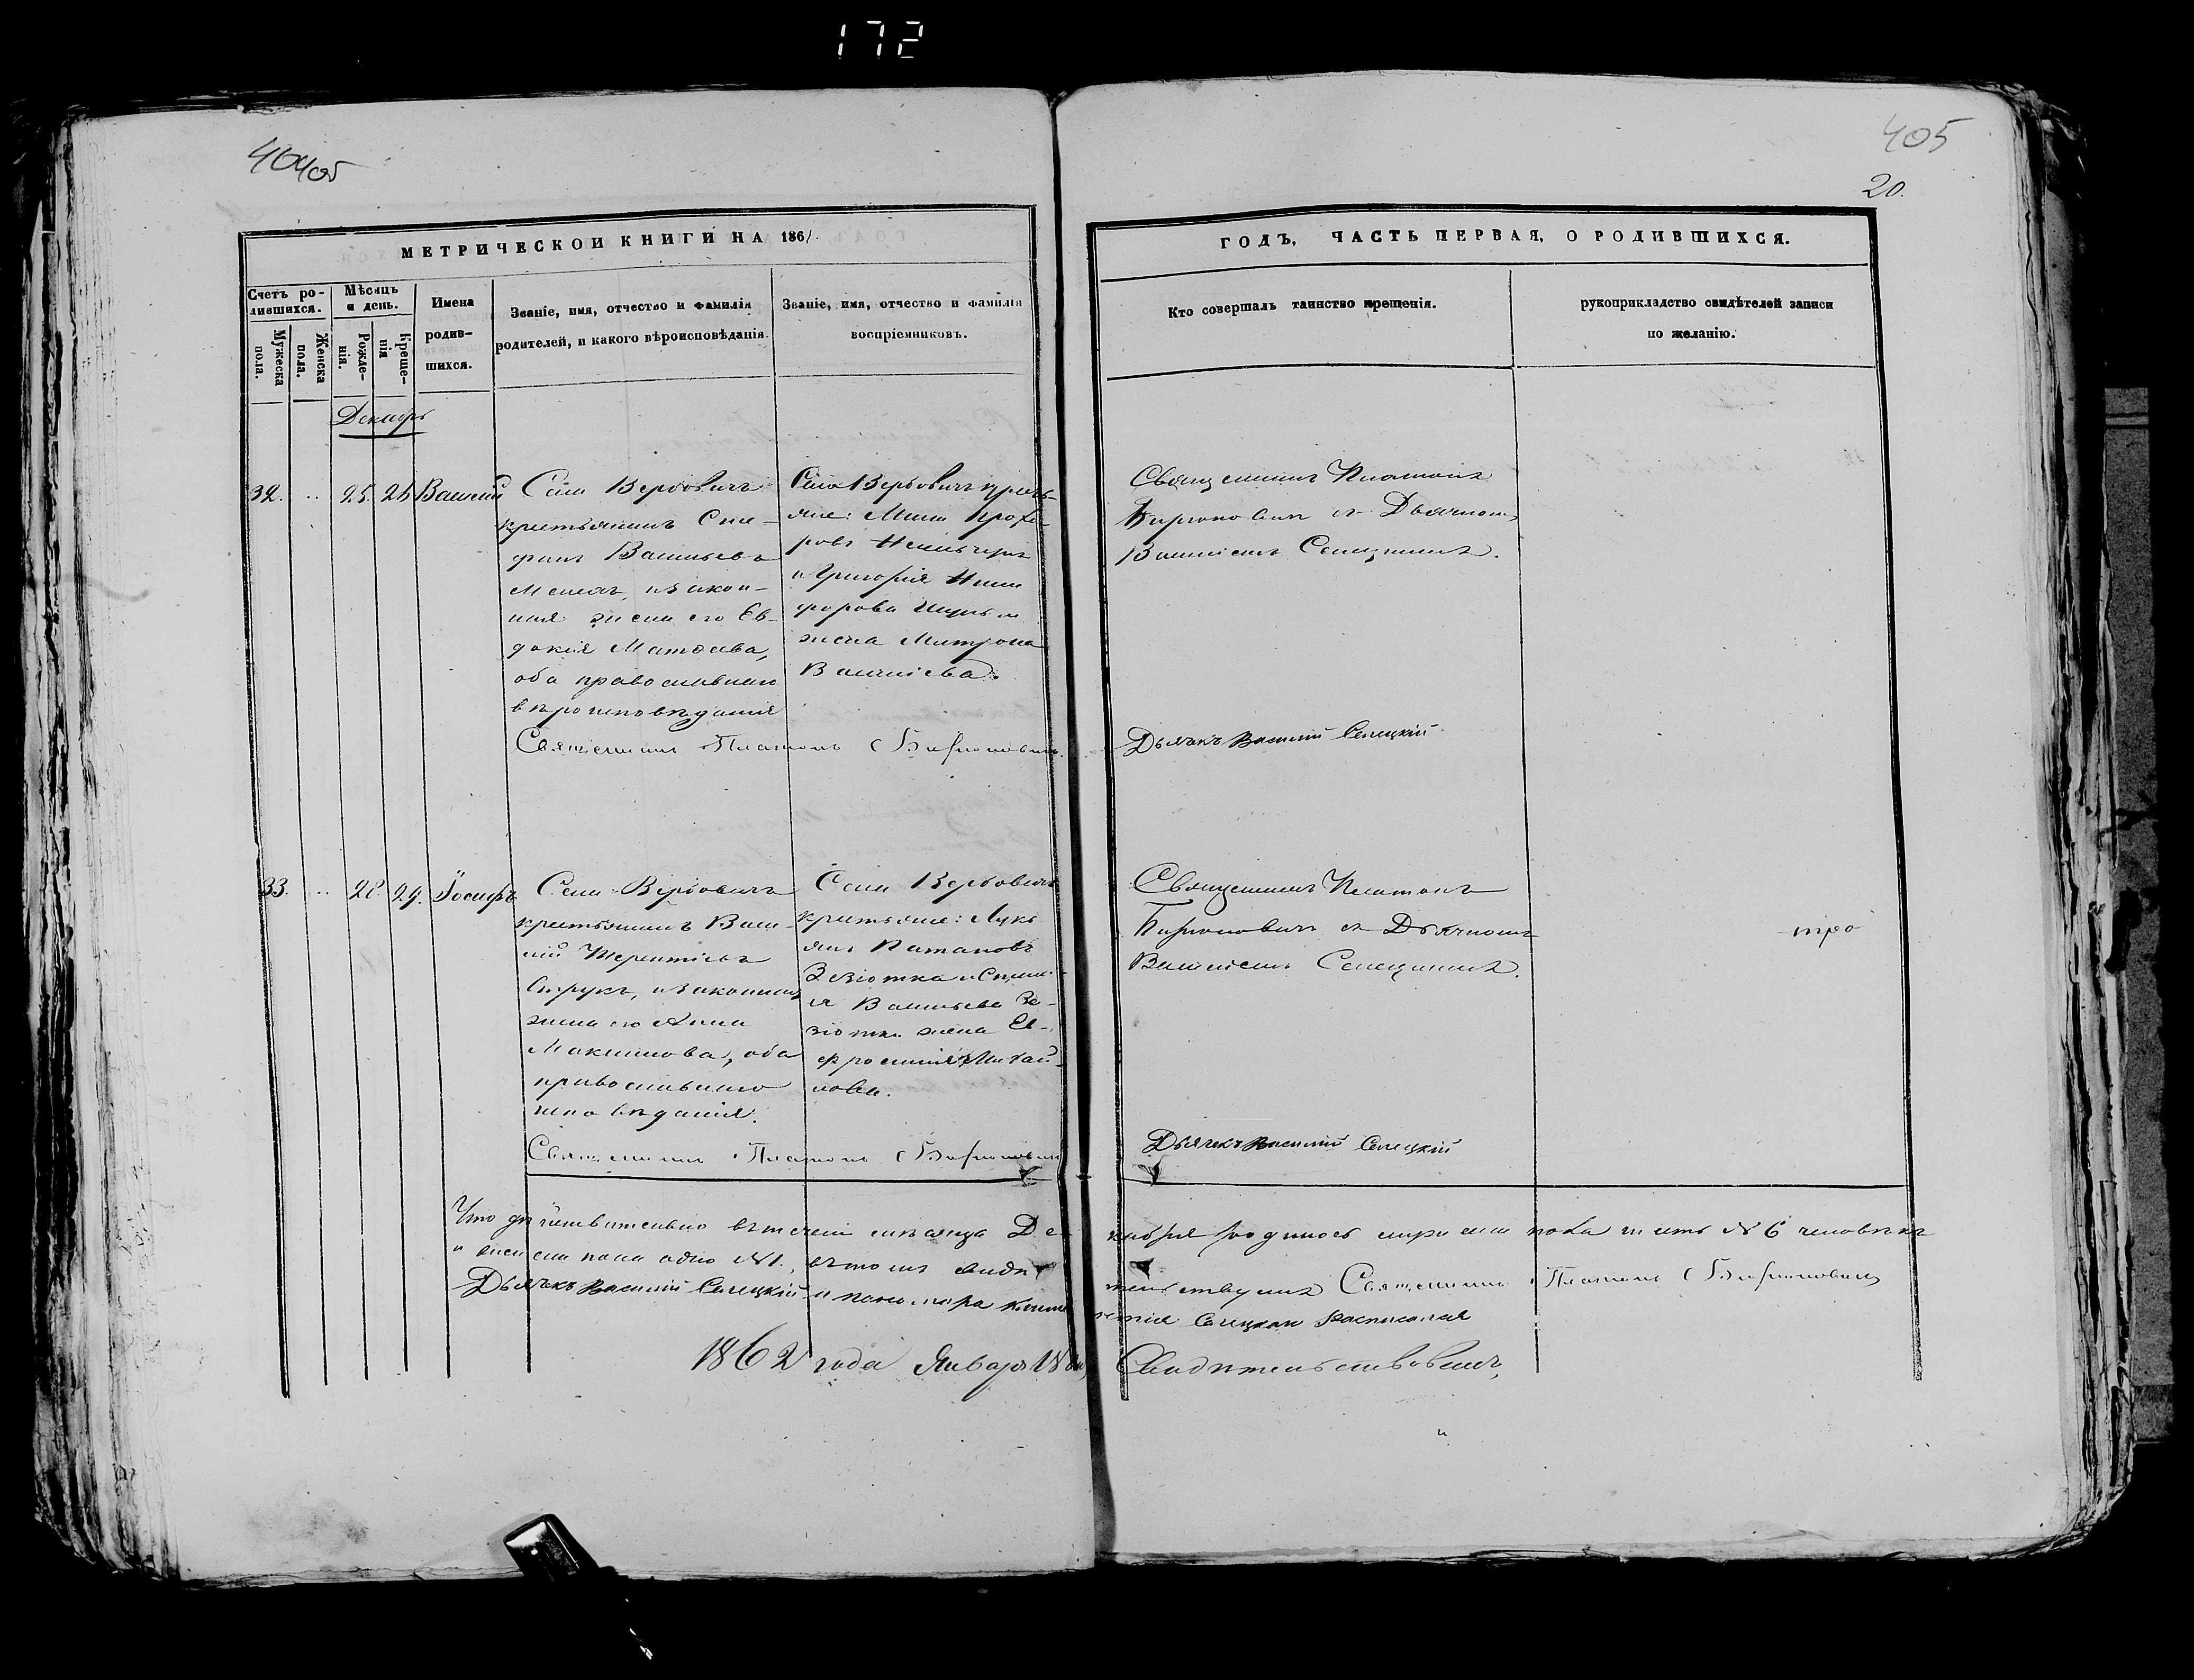 172
404об
405
20.
МЕТРИЧЕСКОИ КНИГИ НА 1861.
ГОДЪ, ЧАСТЬ ПЕРВАЯ, О РОДИВШИХСЯ.
Счетъ ро-
дившихся.
Мужеска пола.
Женска пола.
Мѣсяцъ
и день.
Рожде-
нія.
Креще-
нія
Имена
родив-
шихся.
Званіе, имя, отчество и фамилія
родителей, и какого вѣроисповѣданія.
Званіе, имя, отчество и фамилія
воспріемниковъ.
Кто совершалъ таинство крещенія.
рукоприкладство свидѣтелей записи
по желанію.
Декабрь
32. .. 25. 26 Василій
Села Вербовичъ
крестьянинъ Сте-
фанъ Васильевъ
и закон-
ная жена его Ев-
докія Матѳеева,
оба православнаго
вѣроисповѣданія
Села Вербовичъ кресть-
яне: Прохо-
ровъ
и Григорія Ники
форова
жена Матрона
Василіева.
Священникъ Платонъ
съ Дьячкомъ
Василіемъ Селецкимъ.
Священникъ Платонъ
Дьячекъ Василій Селецкій
33. .. 28. 29. Іосифъ
Села Вербовичъ
крестьянинъ Васи-
лій Терентіевъ
и законная
жена его Анна
Максимова, оба
православнаго
исповѣданія.
Села Вербовичъ
крестьяне: Лукь
янъ Потаповъ
Зезютка и
Васильева Зе-
зютки жена Ев-
фросинія Михай-
лова.
Священникъ Платонъ
съ Дьячкомъ
Василіемъ Селецкимъ.
Священникъ Платонъ
Дьячекъ Василій Селецкій
Что дѣйствительно въ теченіи мѣсяца Де-
кабря родилось мужеска пола шесть № 6 человѣкъ
и женска пола одно № 1., въ томъ свидѣ
тельствуемъ Священникъ Платонъ
Дьячекъ Василій Селецкій и пономаря
Селецкая Росписался
1862 года Января 18 дня, Свидѣтельствовалъ,